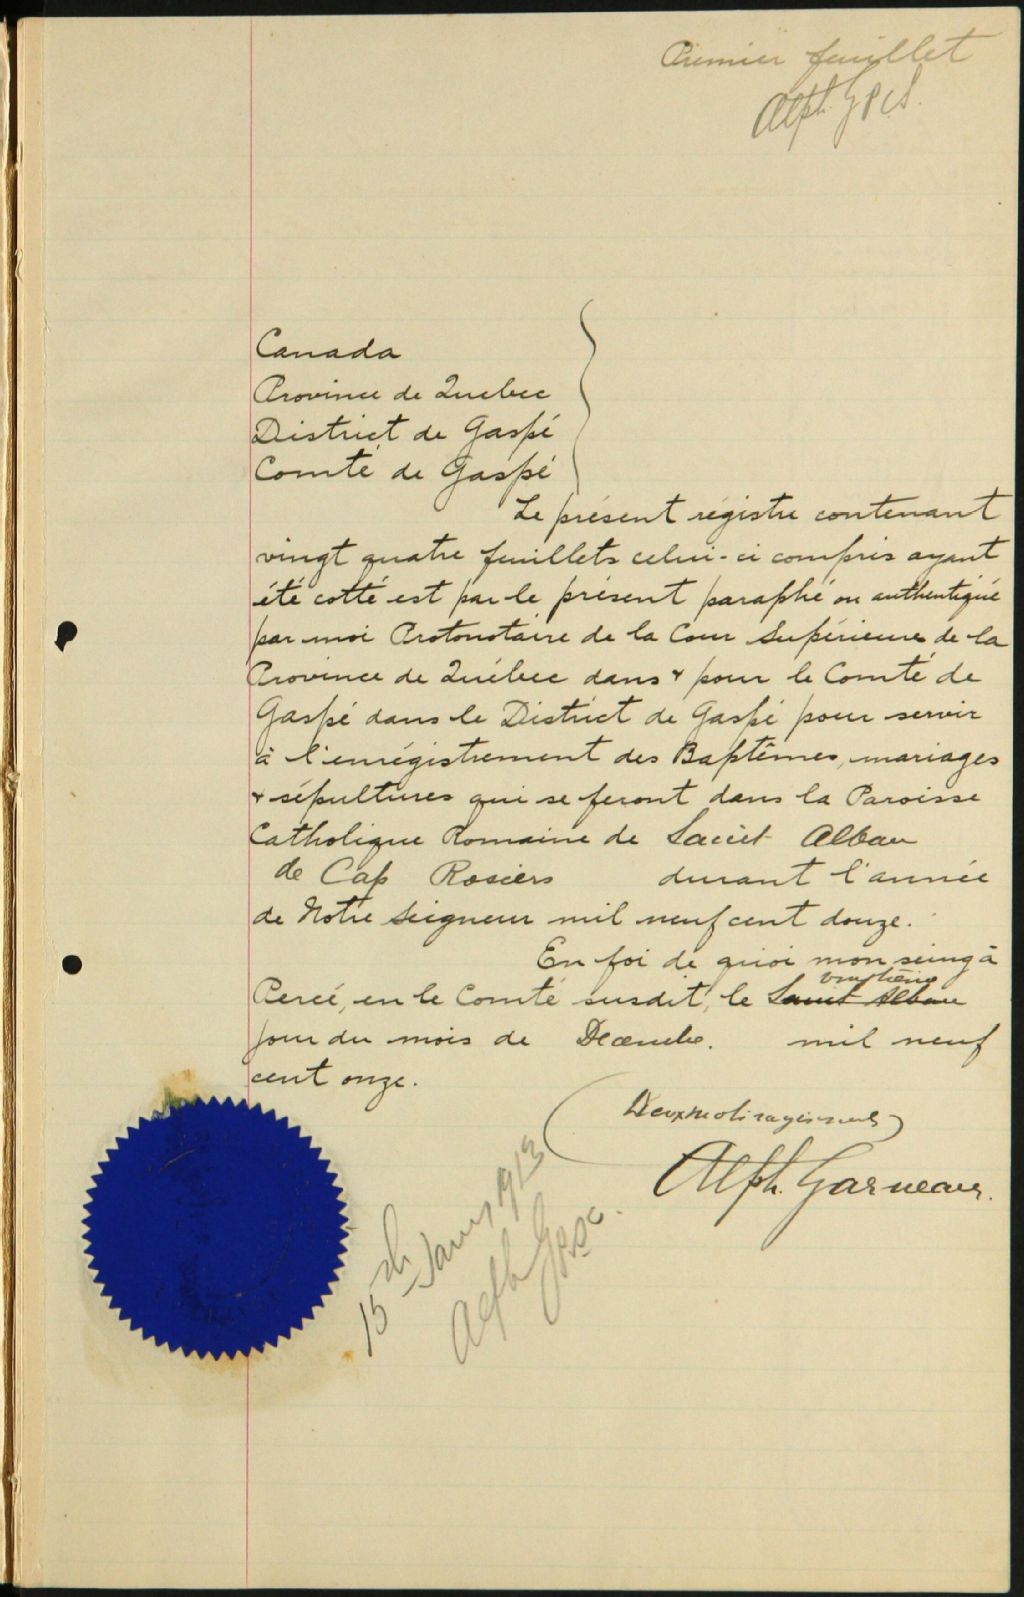 Premier feuillet
Alph. G P C S.
Canada
Province de Quebec
District de Gaspé
Comté de Gaspé
Le présent régistre contenant
vingt quatre feuillets celui-ci compris ayant
été cotté est par le présent paraphé ou authentiqué
par moi Protonotaire de la Cour Supérieure de la
Province de Québec dans & pour le Comté de
Gaspé dans le District de Gaspé pour servir
à l'enrégistrement des Baptêmes, mariages
& sépultures qui se feront dans la Paroisse
Catholique Romaine de Saint Alban
de Cap Rosiers durant l'année
de Notre Seigneur mil neuf cent douze.
En foi de quoi mon seing à
vingtième
Percé, en le Comté susdit, le Saint Alban
jour du mois de Décembre. mil neuf
cent onze.
Deux mots rayés nuls
Alph. Garneau.
15 Janv 1913
Alph